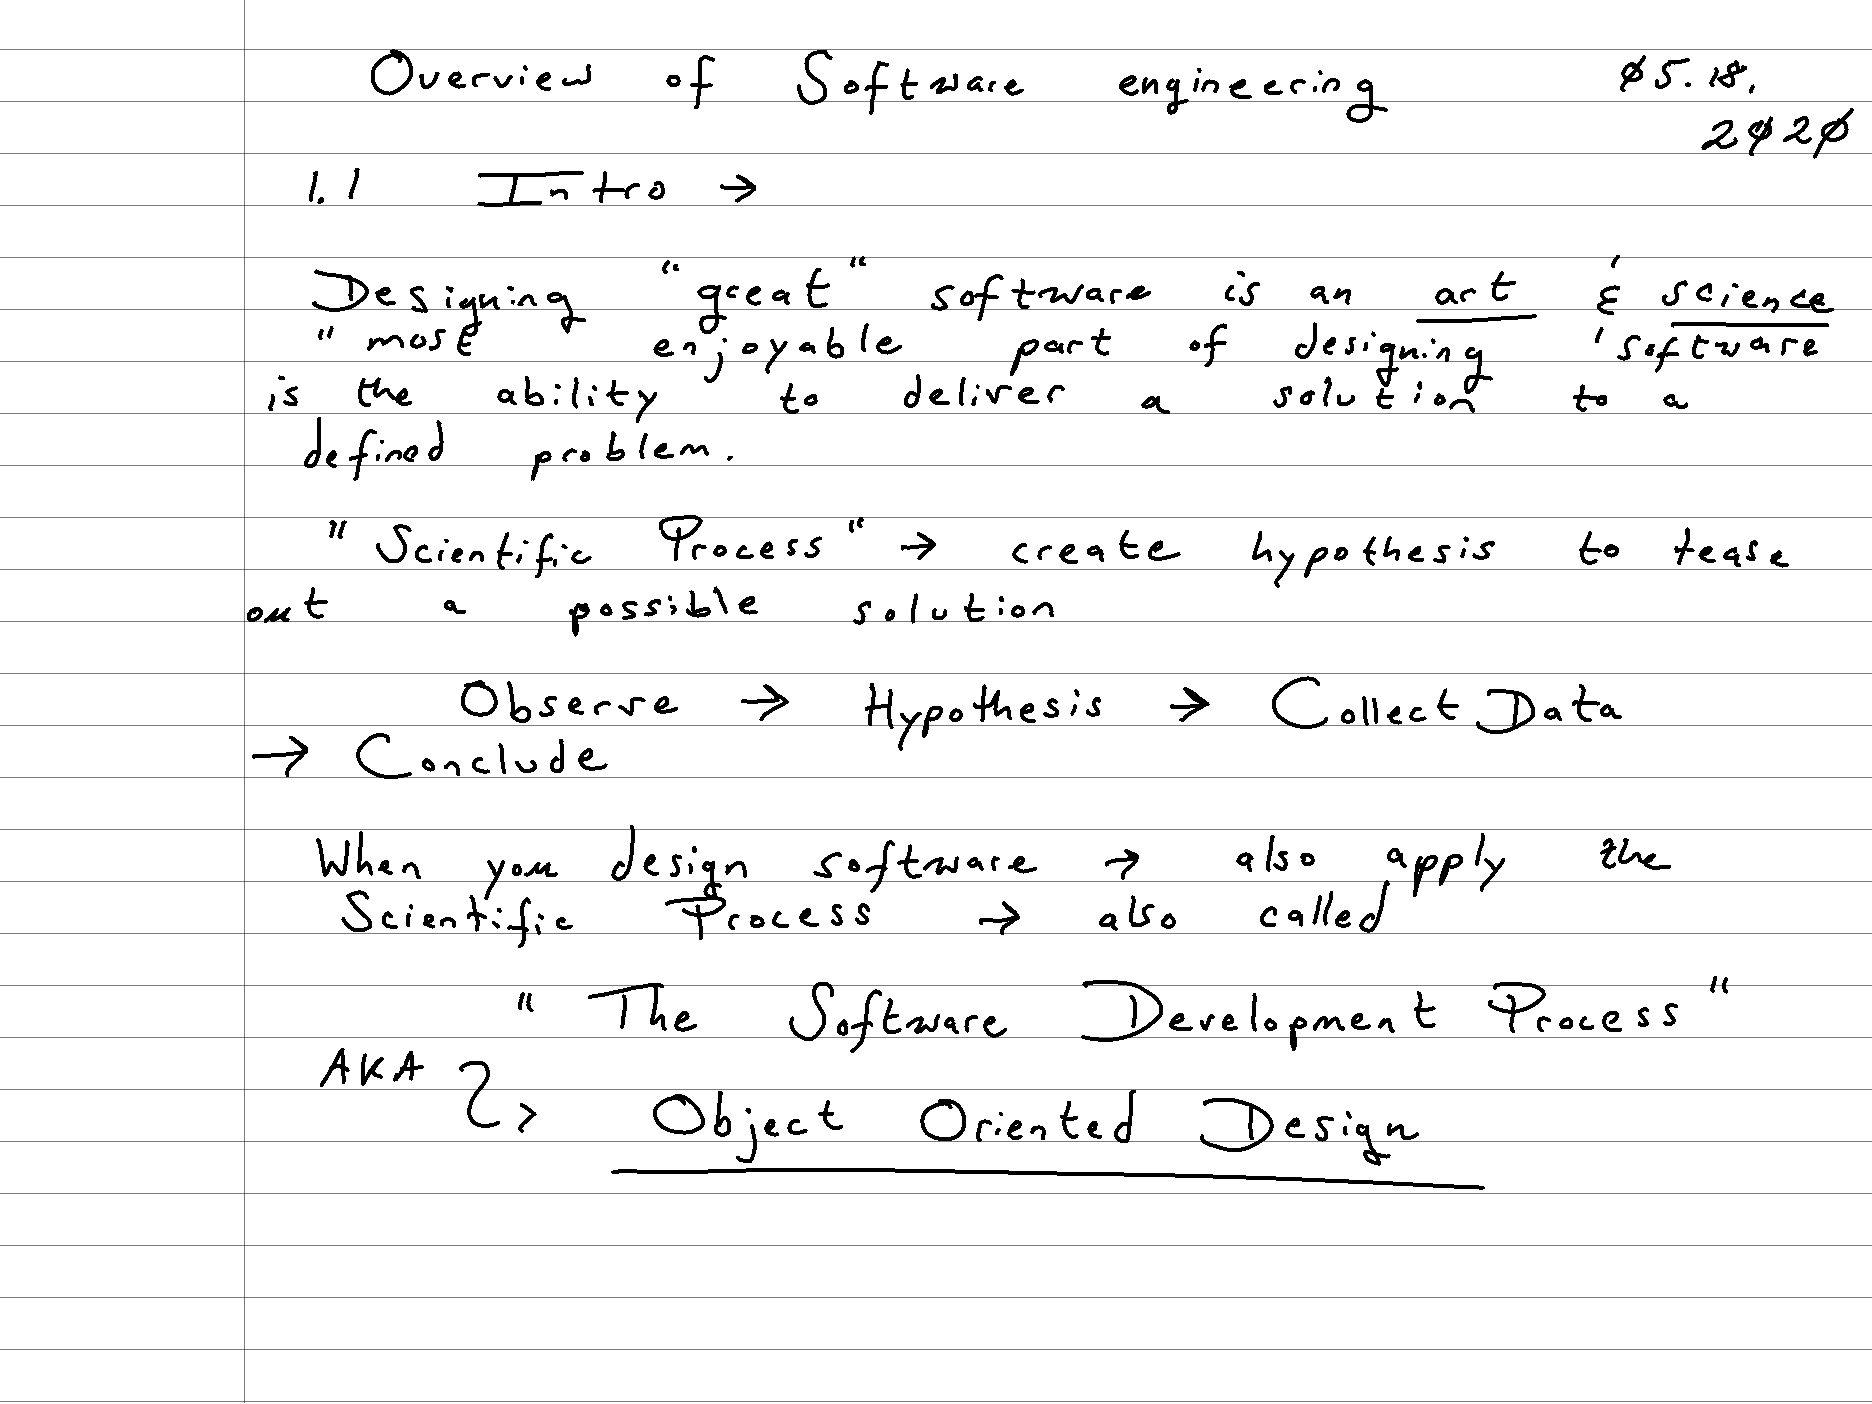 Overview of Software engineering 05.18.
2020
1.1 Intro →
Designing "great" software is an art & science
"most enjoyable part of designing 'software
is the ability to deliver a solution to a
defined problem.
"Scientific Process" → create hypothesis to tease
out a possible solution
Observe → Hypothesis → Collect Data
→ Conclude
When you design software → also apply the
Scientific Process → also called
"The Software Development Process"
AKA
Object Oriented Design